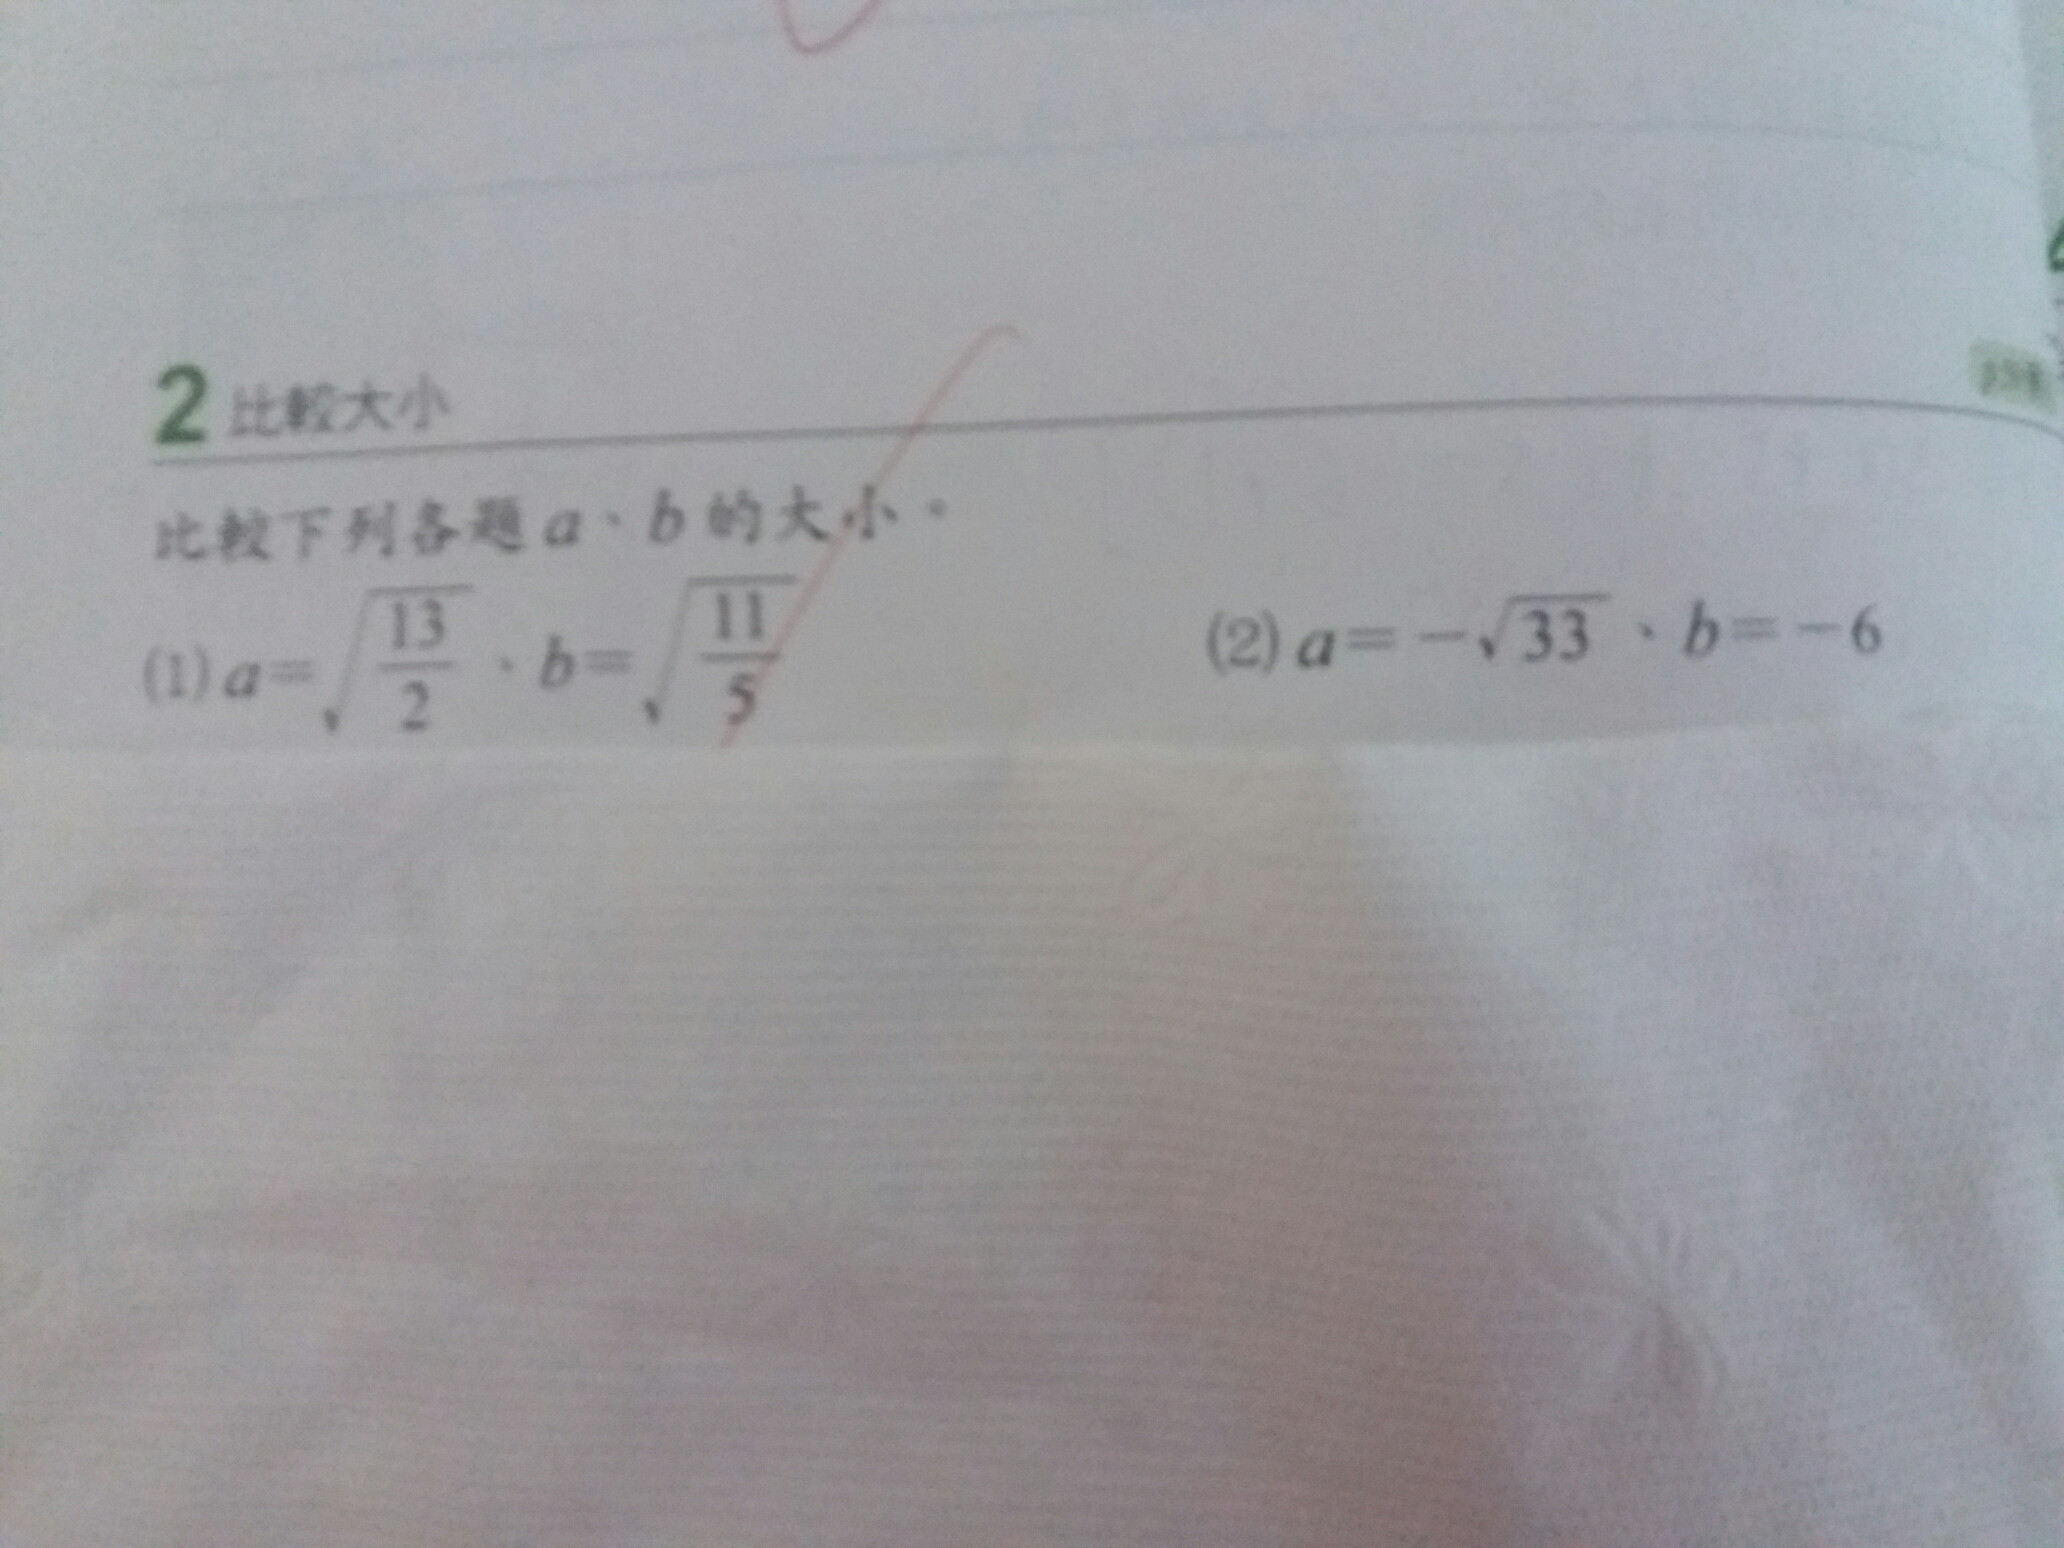 2 比較大小
比較下列各題 a、b 的大小。
(1) a=√(13/2)、b=√(11/5) (2) a=-√33、b=-6